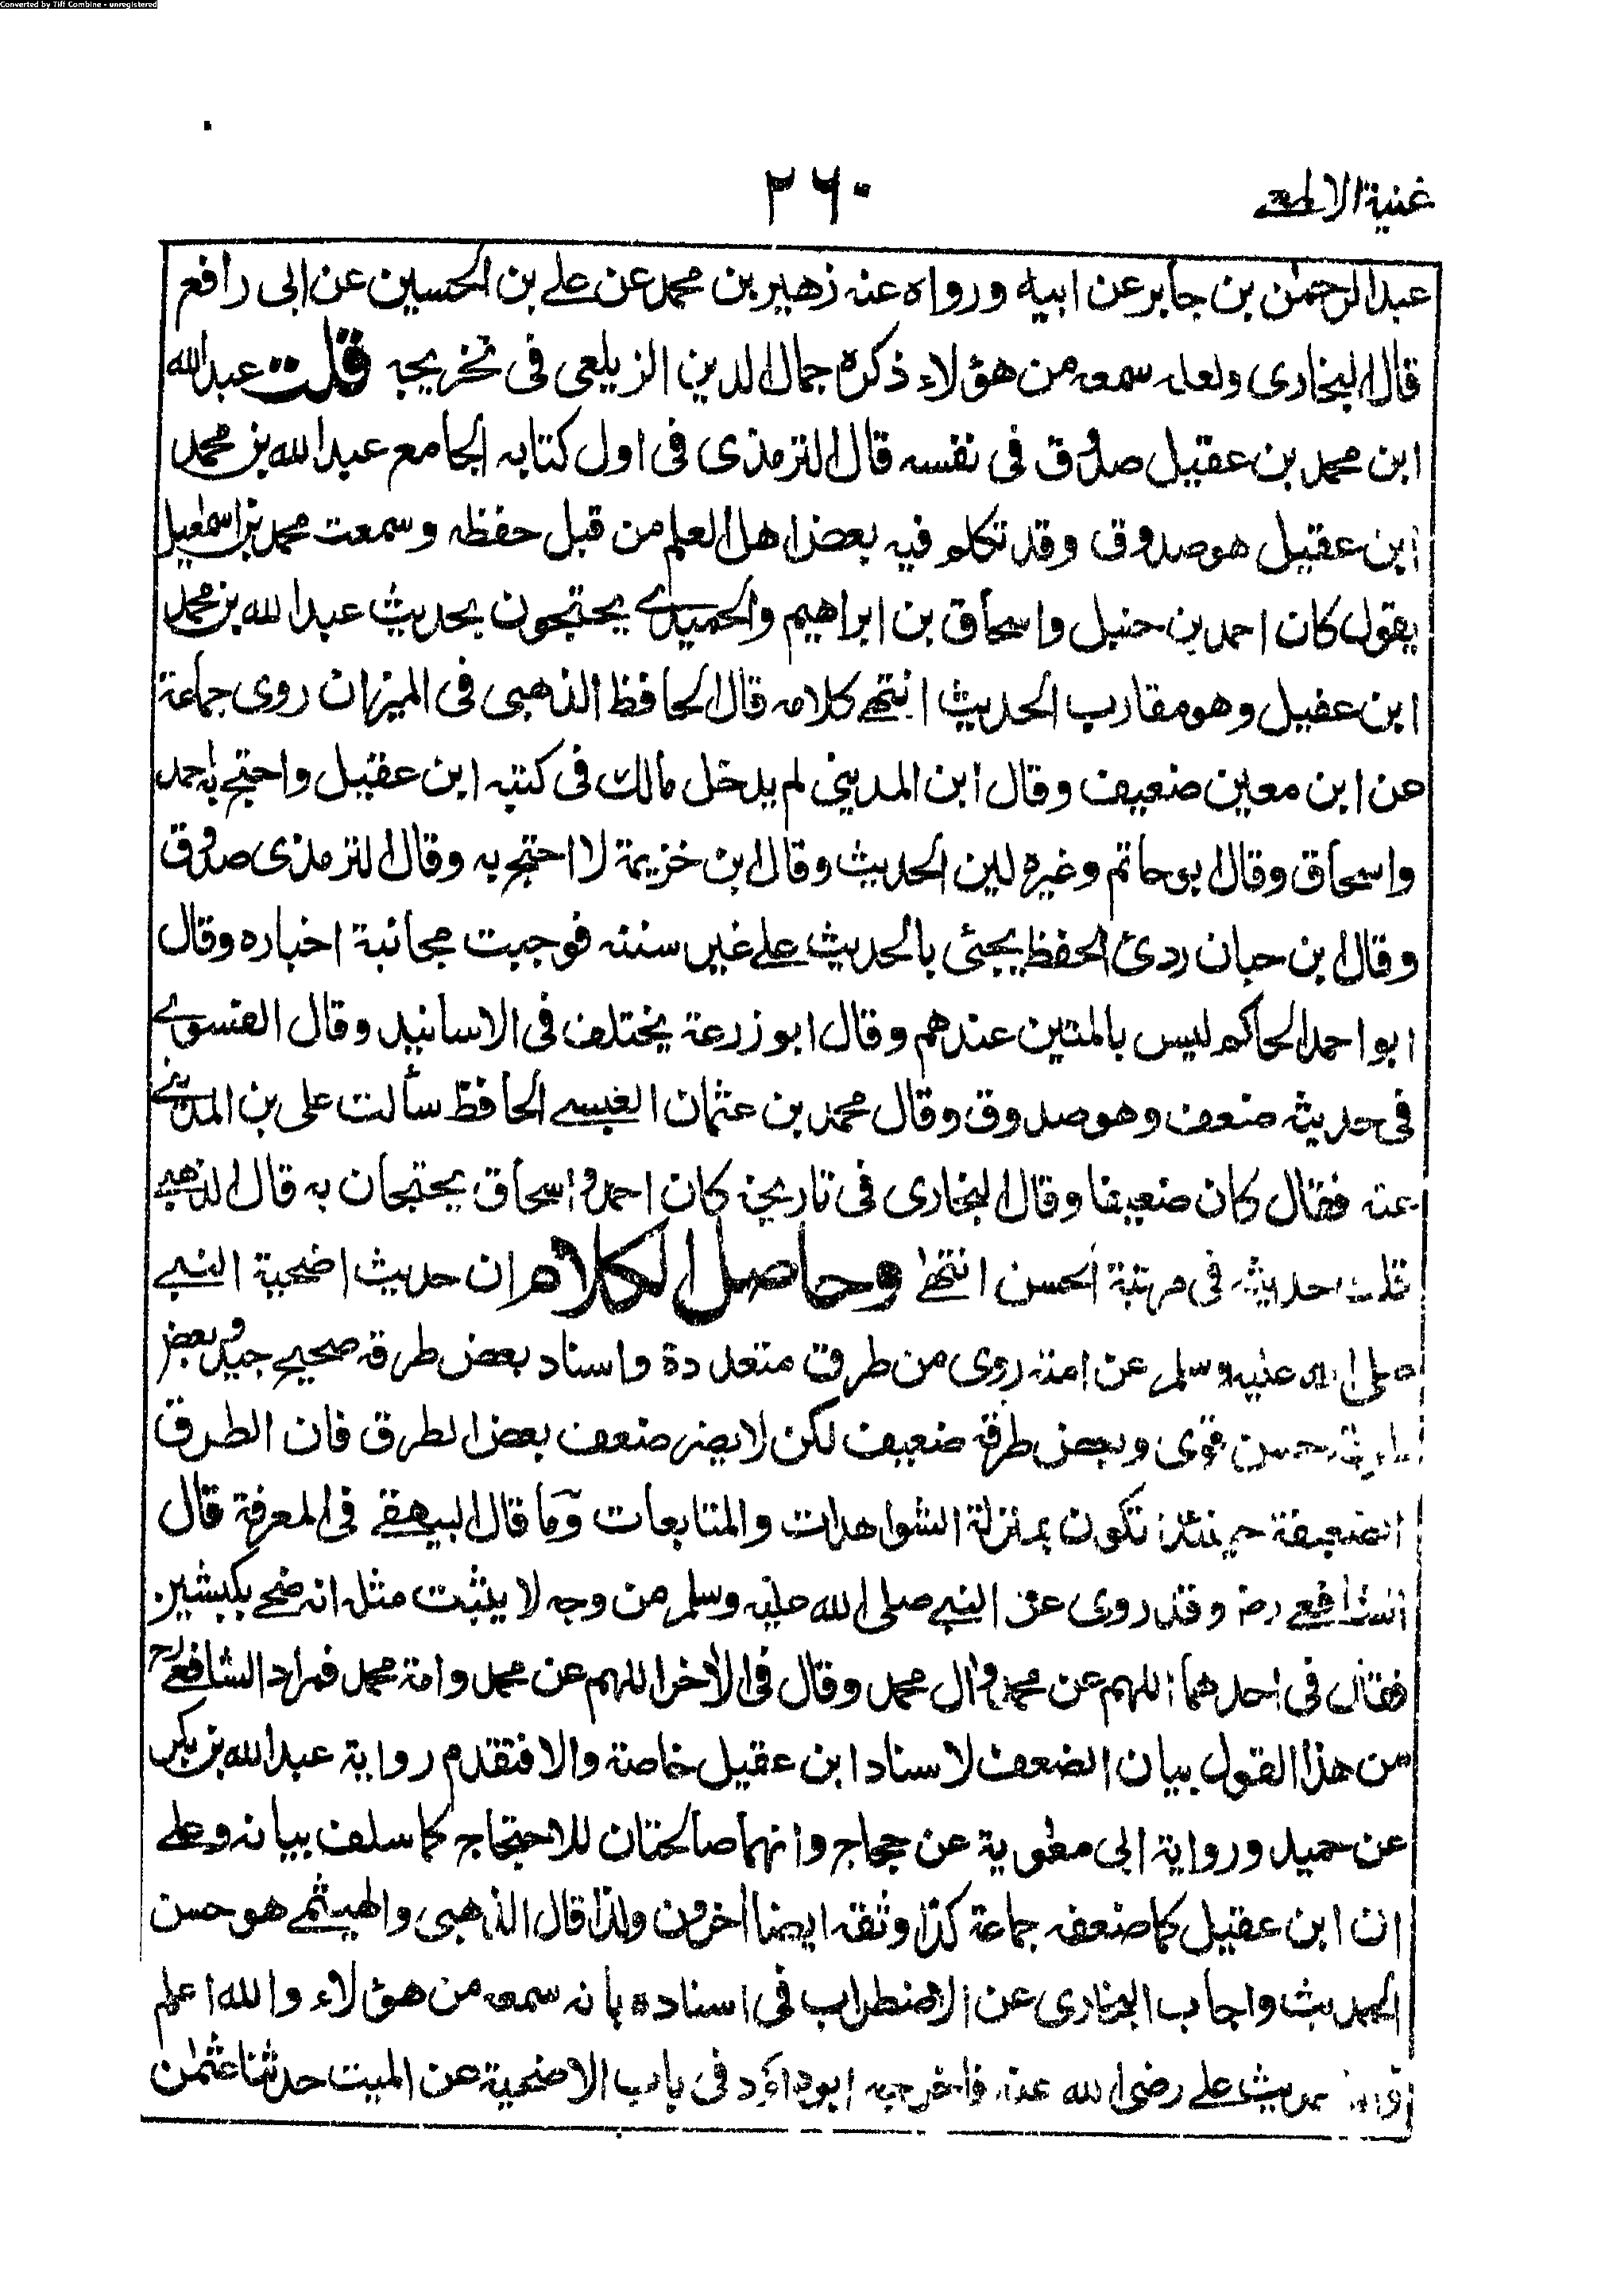 Converted by Tiff Combine - unregistered
غنية الالمعى
٢٦٠
عبد الرحمٰن بن جابر عن ابيه ورواه عنه زهير بن محمد عن على بن الحسين عن ابى رافع
قال البخارى ولعله سمعه من هؤلاء ذكره جمال الدين الزيلعى فى تخريجه قلت عبد الله
ابن محمد بن عقيل صدوق فى نفسه قال الترمذى فى اول كتابه الجامع عبد الله بن محمد
ابن عقيل هو صدوق وقد تكلم فيه بعض اهل العلم من قبل حفظه وسمعت محمد بن اسمٰعيل
يقول كان احمد بن حنبل واسحاق بن ابراهيم والحميدى يحتجون بحديث عبد الله بن محمد
ابن عقيل وهو مقارب الحديث انتهى كلامه قال الحافظ الذهبى فى الميزان روى جماعة
عن ابن معين ضعيف وقال ابن المدينى لم يدخل مالك فى كتبه ابن عقيل واحتج به احمد
واسحاق وقال ابو حاتم وغيره لين الحديث وقال ابن خزيمة لا احتج به وقال الترمذى صدوق
وقال ابن حبان ردئ الحفظ يجئى بالحديث على غير سننه فوجبت مجانبة اخباره وقال
ابو احمد الحاكم ليس بالمتين عندهم وقال ابو زرعة يختلف فى الاسانيد وقال الفسوى
فى حديثه ضعف وهو صدوق وقال محمد بن عثمان العبسى الحافظ سألت على بن المدينى
عنه فقال كان ضعيفا وقال البخارى فى تاريخه كان احمد واسحاق يحتجان به قال الذهبى
قلت حديثه فى مرتبة الحسن انتهٰى وحاصل الكلام ان حديث اضحية النبى
صلى الله عليه وسلم عن امته روى من طرق متعددة واسناد بعض طرقه صحيح جيد وبعض
طرقه حسن قوى وبعض طرقه ضعيف لكن لا يضر ضعف بعض الطرق فان الطرق
الضعيفة حينئذ تكون بمنزلة الشواهدات والمتابعات وما قال البيهقى فى المعرفة قال
الشافعى رضـ وقد روى عن النبى صلى الله عليه وسلم من وجه لا يثبت مثله انه ضحى بكبشين
فقال فى احدهما اللهم عن محمد وال محمد وقال فى الاخر اللهم عن محمد وامة محمد فمراد الشافعى رح
من هذا القول بيان الضعف لاسناد ابن عقيل خاصة والا فتقدم رواية عبد الله بن بكر
عن حميد ورواية ابى معٰوية عن حجاج وانهما صالحتان للاحتجاج كما سلف بيانه وعلى
ان ابن عقيل كما ضعفه جماعة كذا وثقه ايضا اخرون ولذا قال الذهبى والهيثمى هو حسن
الحديث واجاب البخارى عن الاضطراب فى اسناده بانه سمعه من هؤلاء والله اعلم
حديث على رضى الله عنه فاخرجه ابو داؤد فى باب الاضحية عن الميت حدثنا عثمٰن